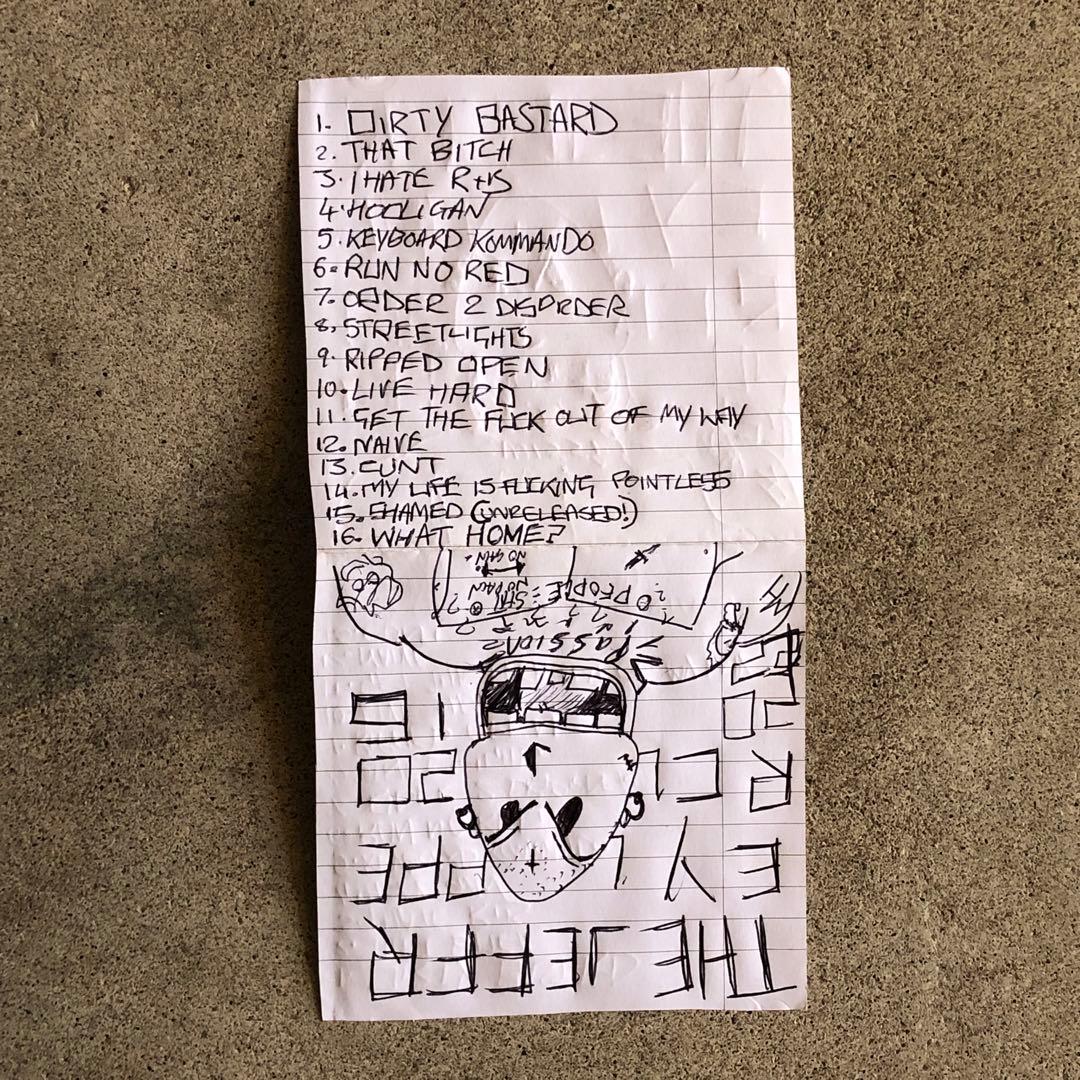 1. DIRTY BASTARD
2. THAT BITCH
3. I HATE R+B
4. HOOLIGAN
5. KEYBOARD KOMMANDO
6. RUN NO RED
7. ORDER 2 DISORDER
8. STREETLIGHTS
9. RIPPED OPEN
10. LIVE HARD
11. GET THE FUCK OUT OF MY WAY
12. NAIVE
13. CUNT
14. MY LIFE IS FUCKING POINTLESS
15. SHAMED (UNRELEASED!)
16. WHAT HOME?
THE JEFFR
EY
PEOPLE =
NO PAIN
NO GAIN